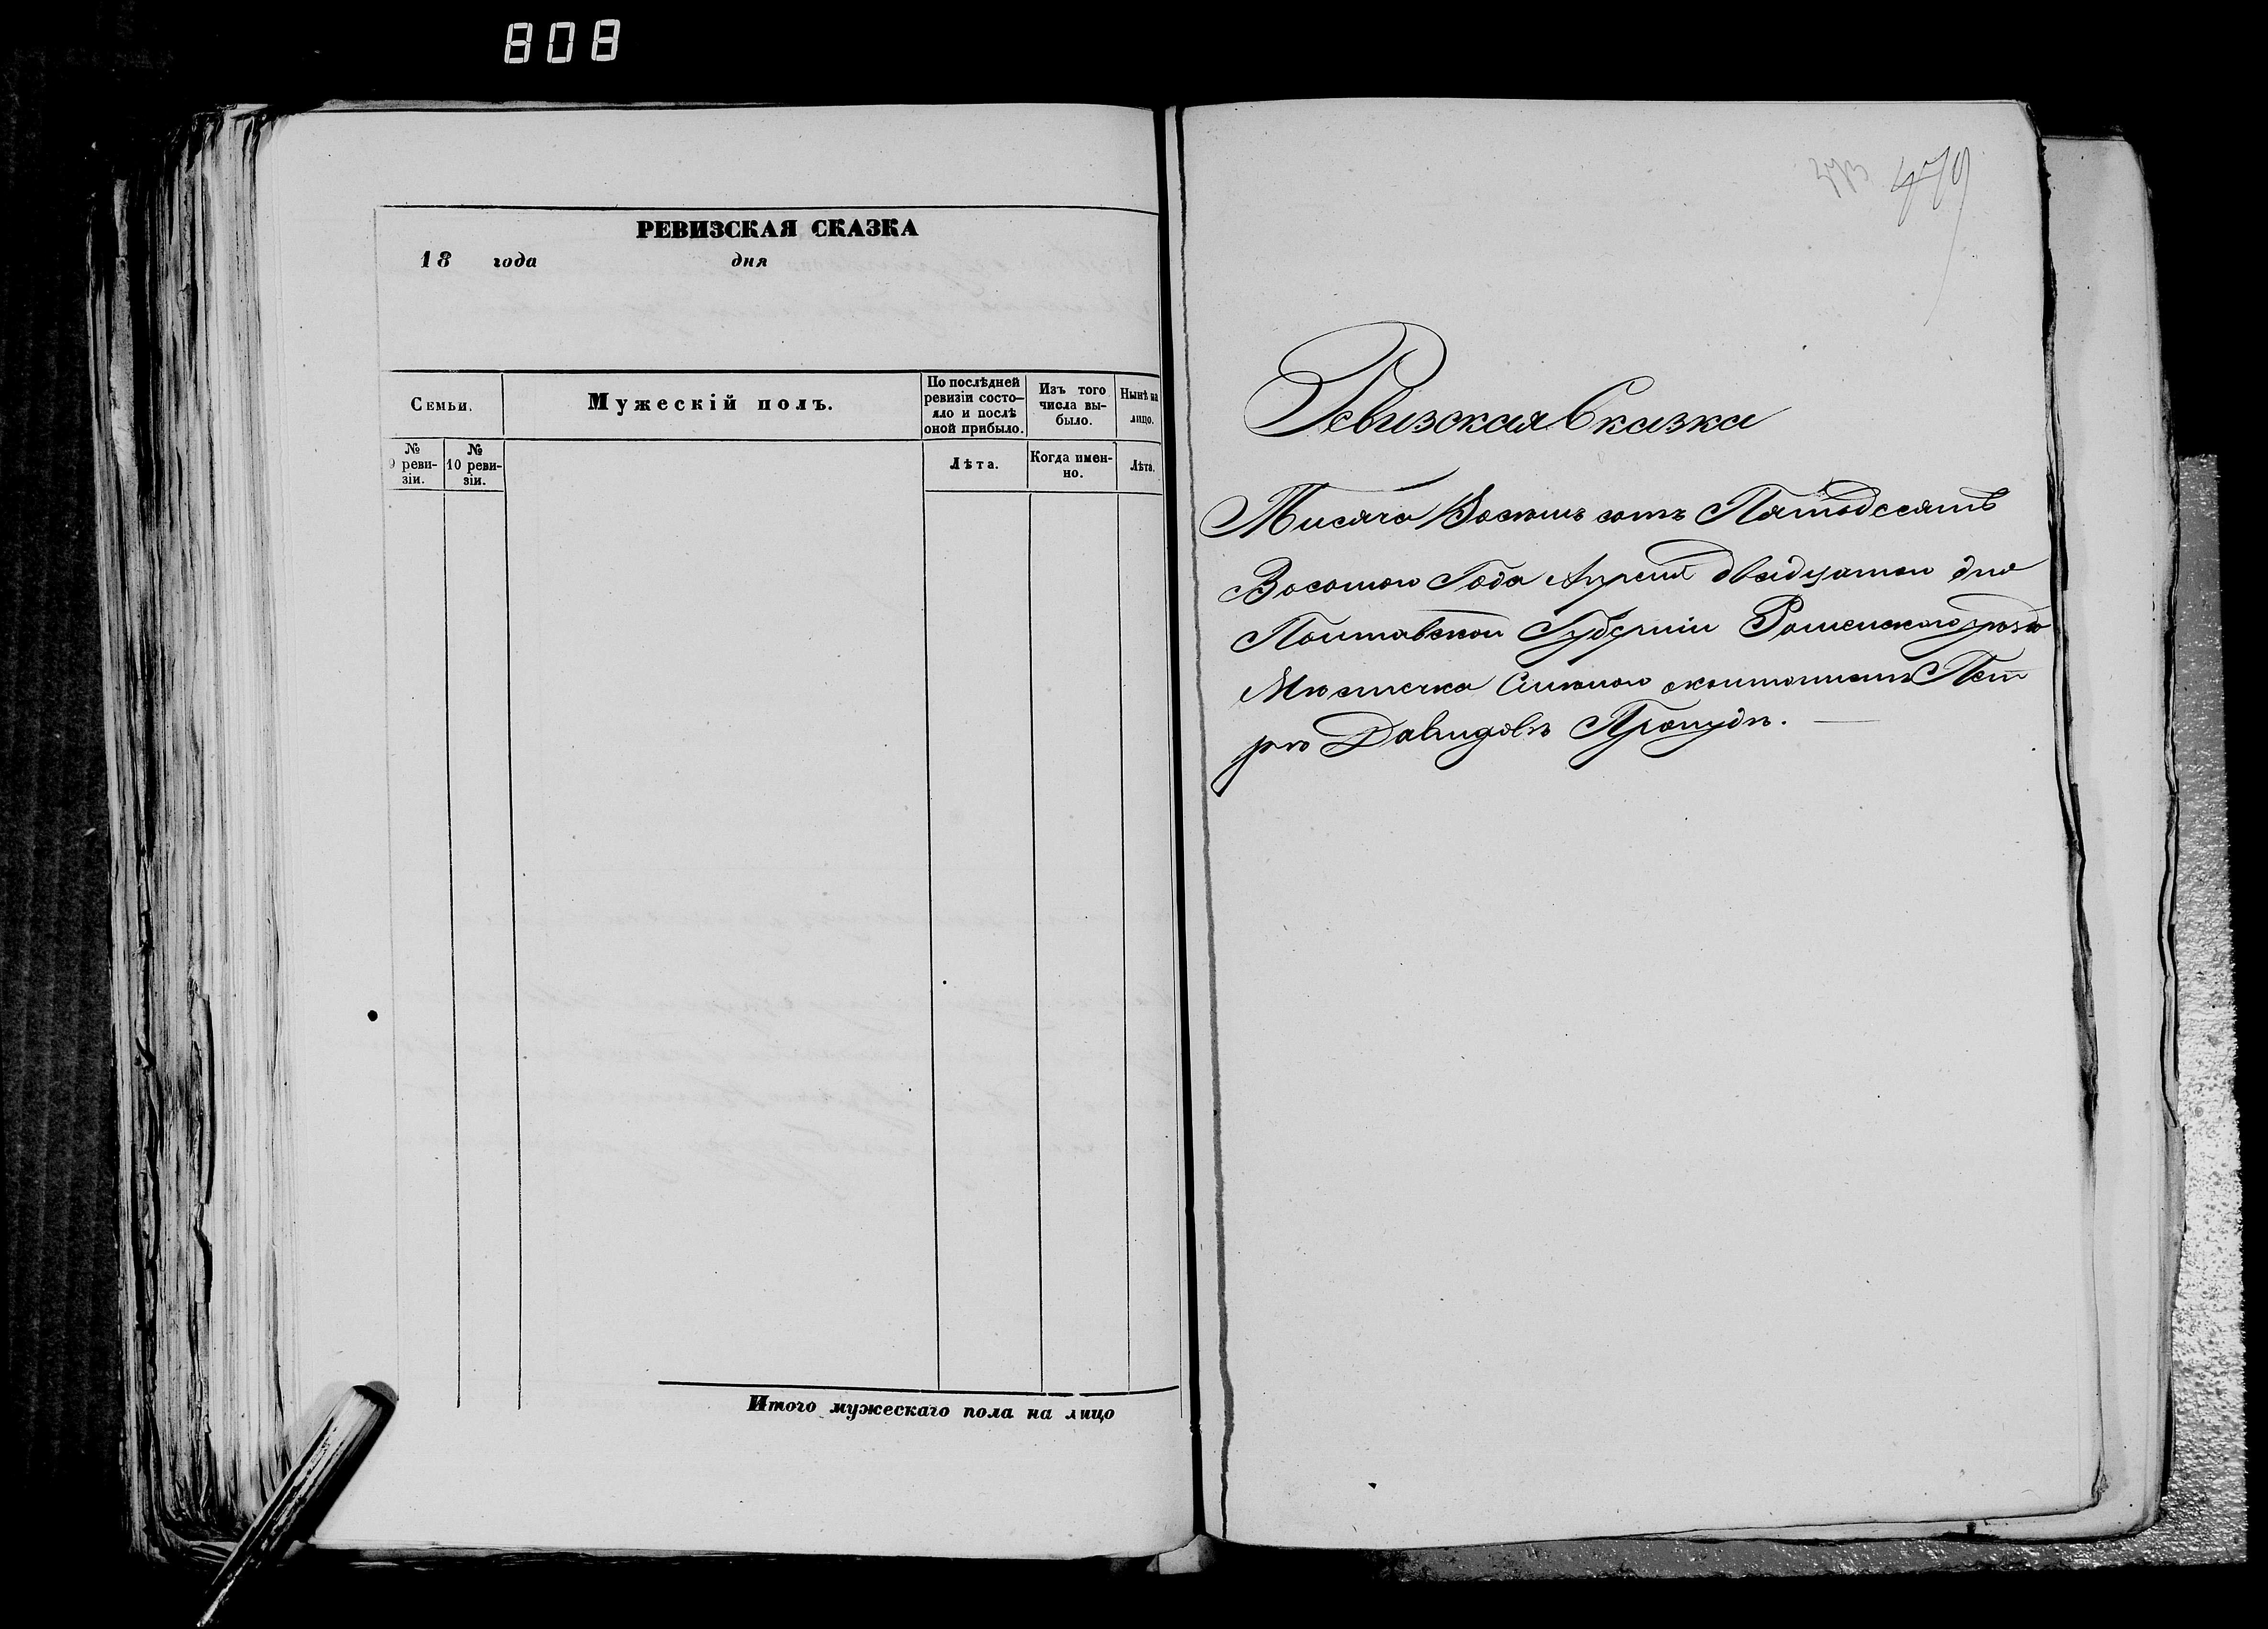 808
РЕВИЗСКАЯ СКАЗКА
18 года дня
Семьи.
Мужескій полъ.
По послѣдней ревизіи состо-
яло и послѣ
оной прибыло.
Изъ того
числа вы-
было.
Нынѣ на
лицо.
№
9 реви-
зіи.
№
10 реви-
зіи.
Лѣта.
Когда имен-
но.
Лѣта.
Итого мужескаго пола на лицо
479
Ревизская Сказка
Тисяча Восемь сотъ Пятьдесятъ
Восомого Года Апреля двадцатого дня
Полтавской Губерніи Роменского уезда
Местечка Смелого
Давидовъ